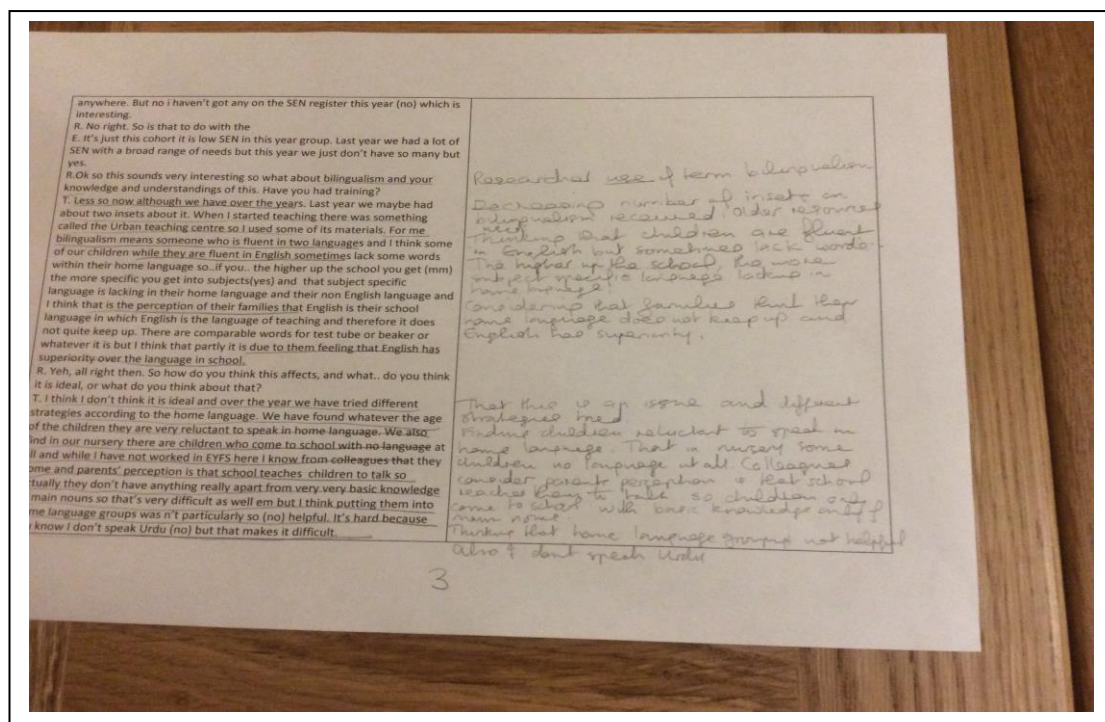 anywhere. But no i haven't got any on the SEN register this year (no) which is
interesting.
R. No right. So is that to do with the
E. It's just this cohort it is low SEN in this year group. Last year we had a lot of
SEN with a broad range of needs but this year we just don't have so many but
yes.
R.Ok so this sounds very interesting so what about bilingualism and your
knowledge and understandings of this. Have you had training?
T. Less so now although we have over the years. Last year we maybe had
about two insets about it. When I started teaching there was something
called the Urban teaching centre so I used some of its materials. For me
bilingualism means someone who is fluent in two languages and I think some
of our children while they are fluent in English sometimes lack some words
within their home language so..if you.. the higher up the school you get (mm)
the more specific you get into subjects(yes) and that subject specific
language is lacking in their home language and their non English language and
I think that is the perception of their families that English is their school
language in which English is the language of teaching and therefore it does
not quite keep up. There are comparable words for test tube or beaker or
whatever it is but I think that partly it is due to them feeling that English has
superiority over the language in school.
R. Yeh, all right then. So how do you think this affects, and what.. do you think
it is ideal, or what do you think about that?
T. I think I don't think it is ideal and over the year we have tried different
strategies according to the home language. We have found whatever the age
of the children they are very reluctant to speak in home language. We also
ind in our nursery there are children who come to school with no language at
ll and while I have not worked in EYFS here I know from colleagues that they
ome and parents' perception is that school teaches children to talk so
tually they don't have anything really apart from very very basic knowledge
main nouns so that's very difficult as well em but I think putting them into
me language groups was n't particularly so (no) helpful. It's hard because
know I don't speak Urdu (no) but that makes it difficult.
Researcher use of term bilingualism
Decreasing number of insets on
bilingualism received. Older resources
used
Thinking that children are fluent
in English but sometimes lack words.
The higher up the school, the more
subject specific language lacking in
home language.
Considering that families think their
home language does not keep up and
English has superiority.
That this is an issue and different
strategies tried
Finding children reluctant to speak in
home language. That in nursery some
children no language at all. Colleagues
consider parents perception is that school
teaches them to talk so children only
come to school with basic knowledge only of
main nouns.
Thinking that home language groups not helpful
also I dont speak Urdu
3